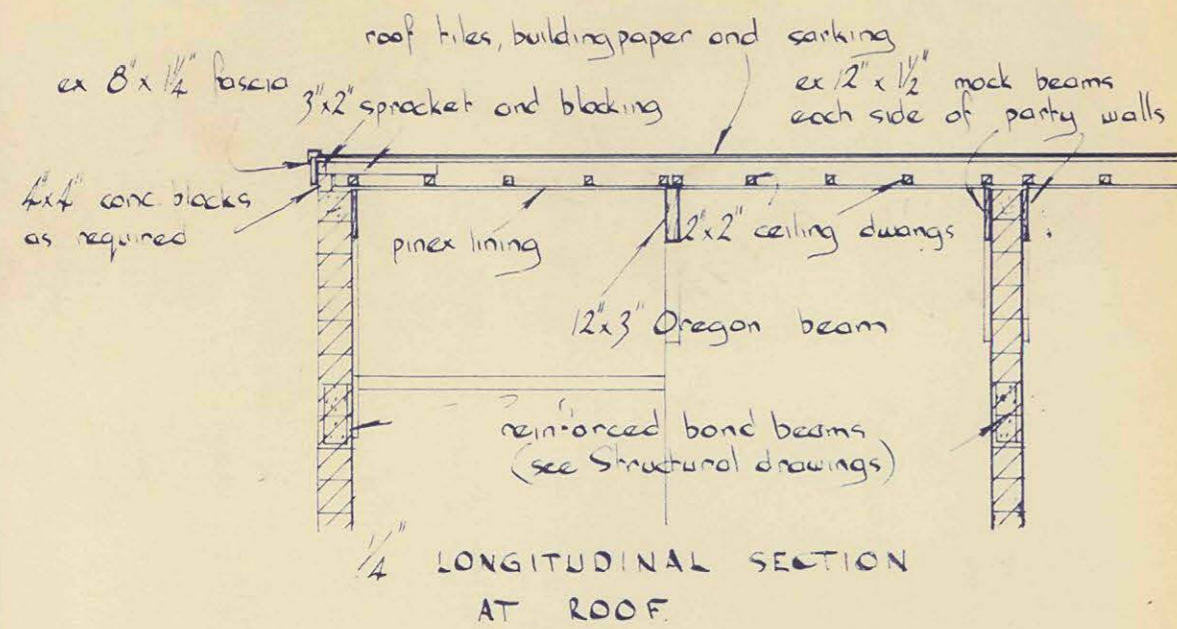 roof tiles, building paper and sarking
ex 8" x 1¼" fascia
3"x2" sprocket and blocking
ex 12" x 1½" mock beams
each side of party walls
4"x4" conc. blocks
as required
pinex lining
2"x2" ceiling dwangs
12"x3" Oregon beam
reinforced bond beams
(see Structural drawings)
¼" LONGITUDINAL SECTION
AT ROOF.